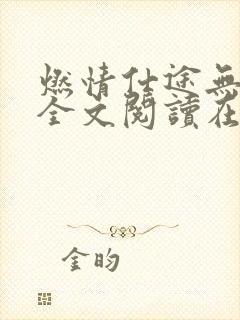 燃情仕途無
全文閱讀在
金昀